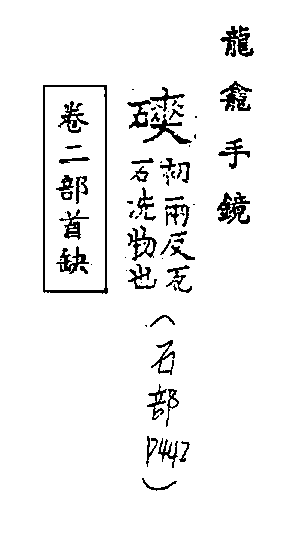 龍龕手鏡
磢
初兩反瓦
石洗物也
(石部
P442)
卷二部首缺